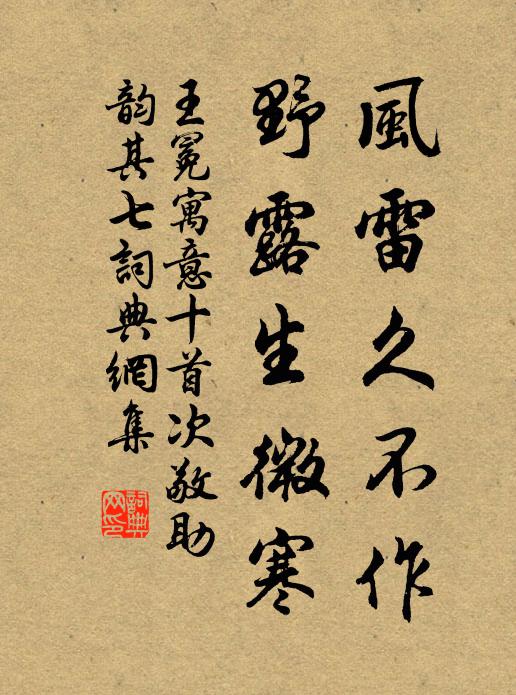 風雷久不作
野露生微寒
王冕寓意十首次敬助
韵其七詞典網集
詞典網印